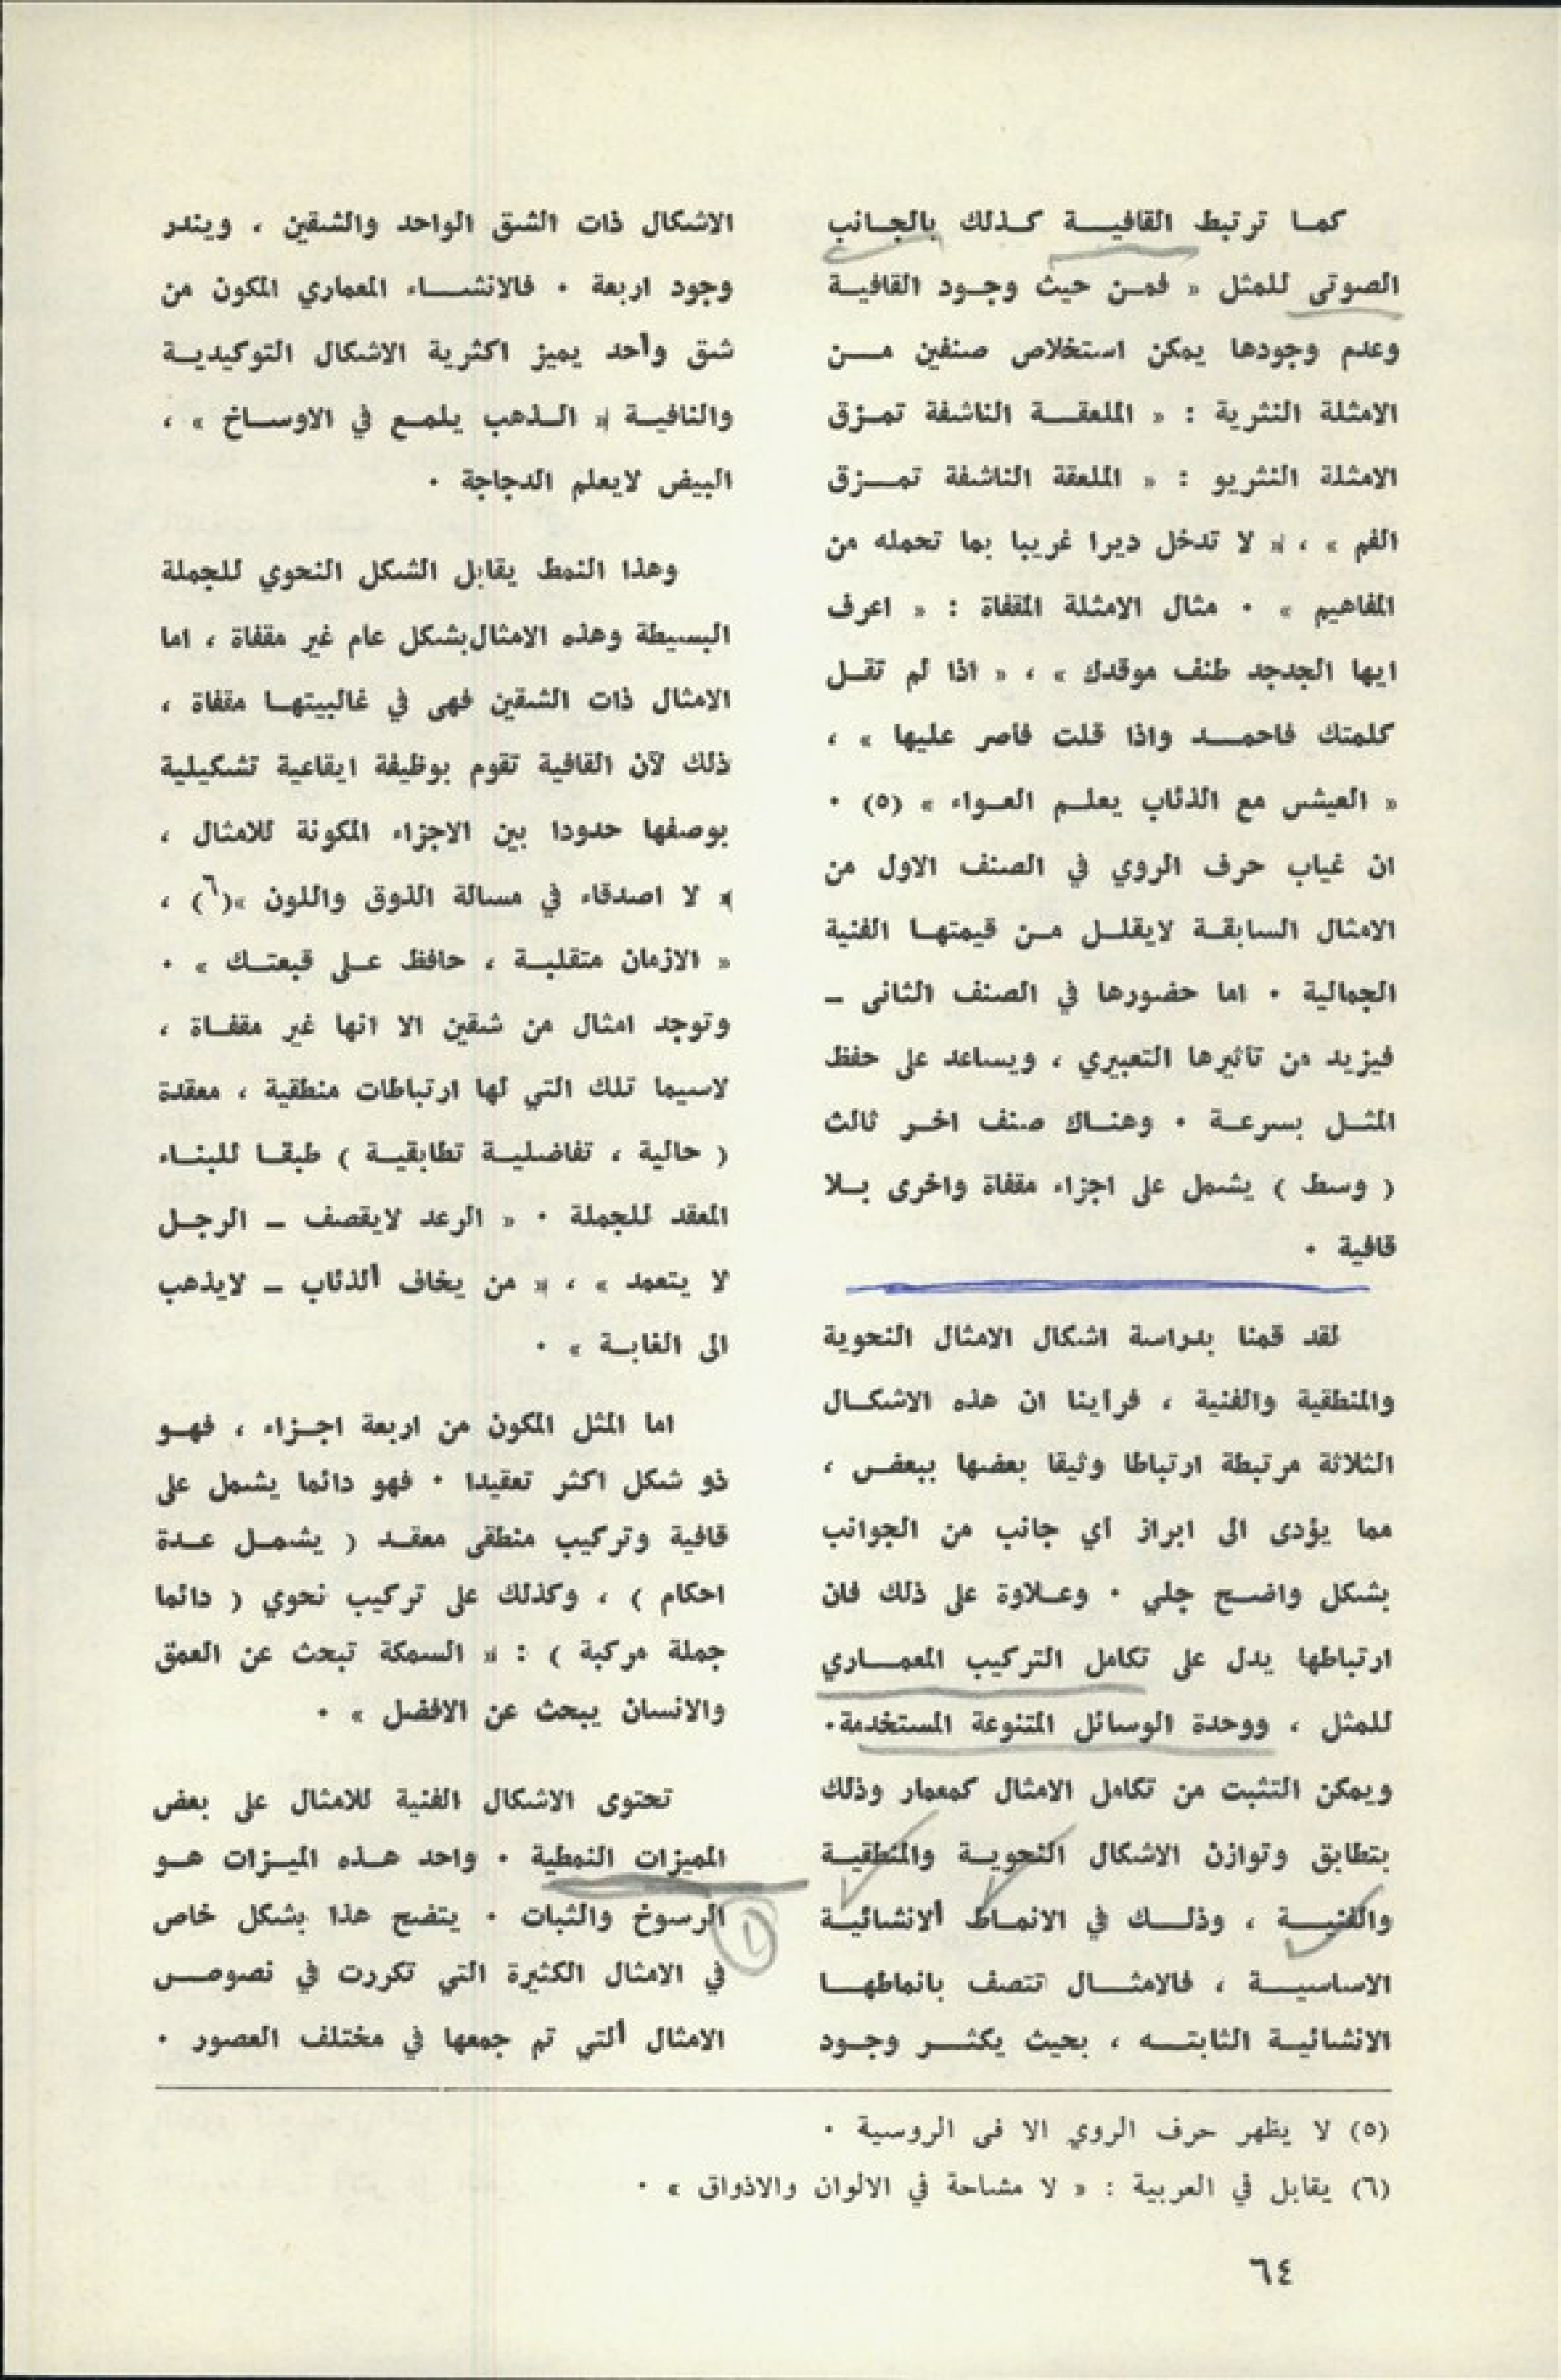 كما ترتبط القافية كذلك بالجانب
الصوتى للمثل « فمن حيث وجود القافية
وعدم وجودها يمكن استخلاص صنفين من
الامثلة النثرية : « الملعقة الناشفة تمزق
الامثلة النثريو : « الملعقة الناشفة تمزق
الفم » ، « لا تدخل ديرا غريبا بما تحمله من
المفاهيم » ٠ مثال الامثلة المقفاة : « اعرف
ايها الجدجد طنف موقدك » ، « اذا لم تقل
كلمتك فاحمد واذا قلت فأصر عليها » ،
« العيش مع الذئاب يعلم العواء » (٥) ٠
ان غياب حرف الروي في الصنف الاول من
الامثال السابقة لايقلل من قيمتها الفنية
الجمالية ٠ اما حضورها في الصنف الثانى ــ
فيزيد من تأثيرها التعبيري ، ويساعد على حفظ
المثل بسرعة ٠ وهناك صنف اخر ثالث
( وسط ) يشمل على اجزاء مقفاة واخرى بلا
قافية ٠
لقد قمنا بدراسة اشكال الامثال النحوية
والمنطقية والفنية ، فراينا ان هذه الاشكال
الثلاثة مرتبطة ارتباطا وثيقا بعضها ببعض ،
مما يؤدى الى ابراز أي جانب من الجوانب
بشكل واضح جلي ٠ وعلاوة على ذلك فان
ارتباطها يدل على تكامل التركيب المعماري
للمثل ، ووحدة الوسائل المتنوعة المستخدمة٠
ويمكن التثبت من تكامل الامثال كمعمار وذلك
بتطابق وتوازن الاشكال النحوية والمنطقية
والفنية ، وذلك في الانماط ألانشائية
الاساسية ، فالامثال تتصف بانماطها
الانشائية الثابته ، بحيث يكثر وجود
الاشكال ذات الشق الواحد والشقين ، ويندر
وجود اربعة ٠ فالانشاء المعماري المكون من
شق وأحد يميز اكثرية الاشكال التوكيدية
والنافية « الذهب يلمع في الاوساخ » ،
البيض لايعلم الدجاجة ٠
وهذا النمط يقابل الشكل النحوي للجملة
البسيطة وهذه الامثال بشكل عام غير مقفاة ، اما
الامثال ذات الشقين فهى في غالبيتها مقفاة ،
ذلك لأن القافية تقوم بوظيفة ايقاعية تشكيلية
بوصفها حدودا بين الاجزاء المكونة للامثال ،
« لا اصدقاء في مسالة الذوق واللون »(٦) ،
« الازمان متقلبة ، حافظ على قبعتك » ٠
وتوجد امثال من شقين الا انها غير مقفاة ،
لاسيما تلك التي لها ارتباطات منطقية ، معقدة
( حالية ، تفاضلية تطابقية ) طبقا للبناء
المعقد للجملة ٠ « الرعد لايقصف ــ الرجل
لا يتعمد » ، « من يخاف ألذئاب ــ لايذهب
الى الغابة » ٠
اما المثل المكون من اربعة اجزاء ، فهو
ذو شكل اكثر تعقيدا ٠ فهو دائما يشمل على
قافية وتركيب منطقى معقد ( يشمل عدة
احكام ) ، وكذلك على تركيب نحوي ( دائما
جملة مركبة ) : « السمكة تبحث عن العمق
والانسان يبحث عن الافضل » ٠
تحتوى الاشكال الفنية للامثال على بعض
المميزات النمطية ٠ واحد هذه الميزات هو
الرسوخ والثبات ٠ يتضح هذا بشكل خاص
في الامثال الكثيرة التي تكررت في نصوص
الامثال ألتي تم جمعها في مختلف العصور ٠
(٥) لا يظهر حرف الروي الا فى الروسية ٠
(٦) يقابل في العربية : « لا مشاحة في الالوان والاذواق » ٠
٦٤